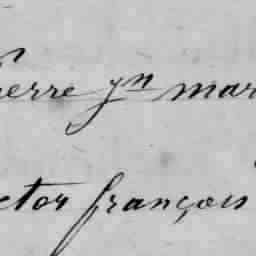 ierre yn mar
ctor françois